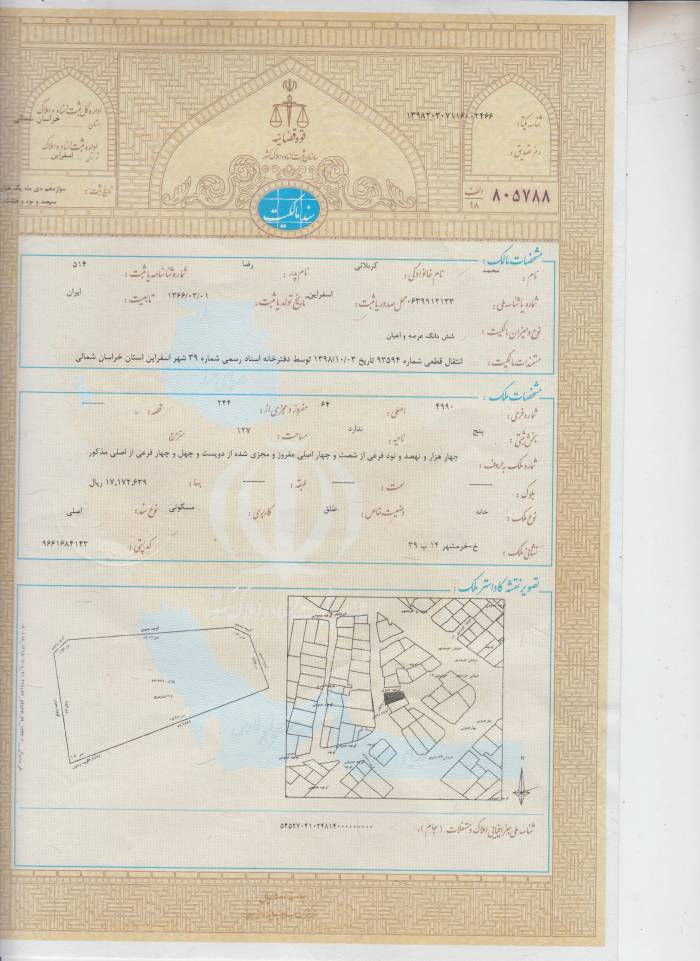 قوه قضائیه
سازمان ثبت اسناد و املاک کشور
سند مالکیت
شناسه یکتا :
رمز تصدیق :
الف ۹۸ ۸۰۵۷۸۸
اداره کل ثبت اسناد و املاک
استان خراسان شمالی
اداره ثبت اسناد و املاک
اسفراین
تاریخ ثبت : دوازدهم دی ماه یک هزار
سیصد و نود و هشت
مشخصات مالک :
نام : محمد نام خانوادگی : کربلائی نام پدر : رضا شماره شناسنامه یا ثبت : ۵۱۴
شماره یا شناسه ملی : ۰۶۳۹۹۱۲۱۳۳ محل صدور یا ثبت : اسفراین تاریخ تولد یا ثبت : ۱۳۶۶/۰۳/۰۱ تابعیت : ایران
نوع و میزان مالکیت : شش دانگ عرصه و اعیان
مستندات مالکیت : انتقال قطعی شماره ۹۳۵۹۴ تاریخ ۱۳۹۸/۱۰/۰۳ توسط دفترخانه اسناد رسمی شماره ۳۹ شهر اسفراین استان خراسان شمالی
مشخصات ملک :
شماره فرعی : ۴۹۹۰ اصلی : ۶۴ مفروز و مجزی از : ۲۴۴ قطعه :
بخش ثبتی : پنج ناحیه : ندارد مساحت : ۱۲۷ مترمربع
شماره ملک به حروف : چهار هزار و نهصد و نود فرعی از شصت و چهار اصلی مفروز و مجزی شده از دویست و چهل و چهار فرعی از اصلی مذکور
بلوک : سمت : طبقه : بها : ۱۷,۱۷۲,۶۳۹ ریال
نوع ملک : خانه وضعیت خاص : طلق کاربری : مسکونی نوع سند : اصلی
نشانی ملک : خ-خرمشهر ۱۴ پ ۳۹ کد پستی : ۹۶۶۱۶۸۴۱۴۳
تصویر نقشه کاداستر ملک :
شناسه ملی جغرافیایی املاک و مستغلات (جام) :